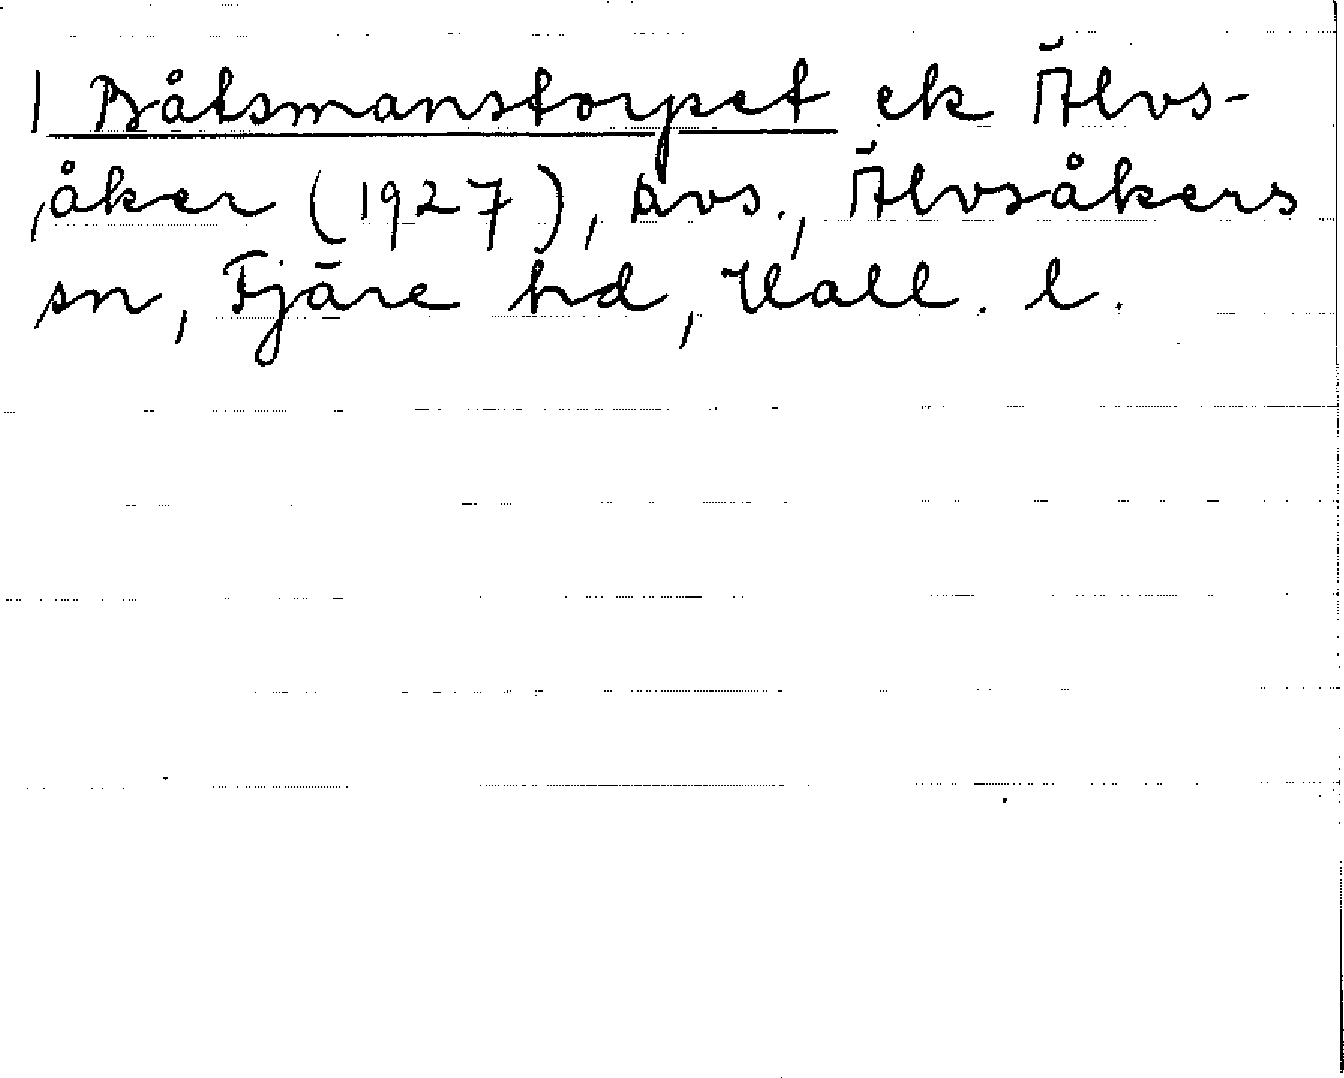 | Båtsmanstorpet ek Älvs-
åker (1927), avs., Älvsåkers
sn, Fjäre hd, Hall. l.